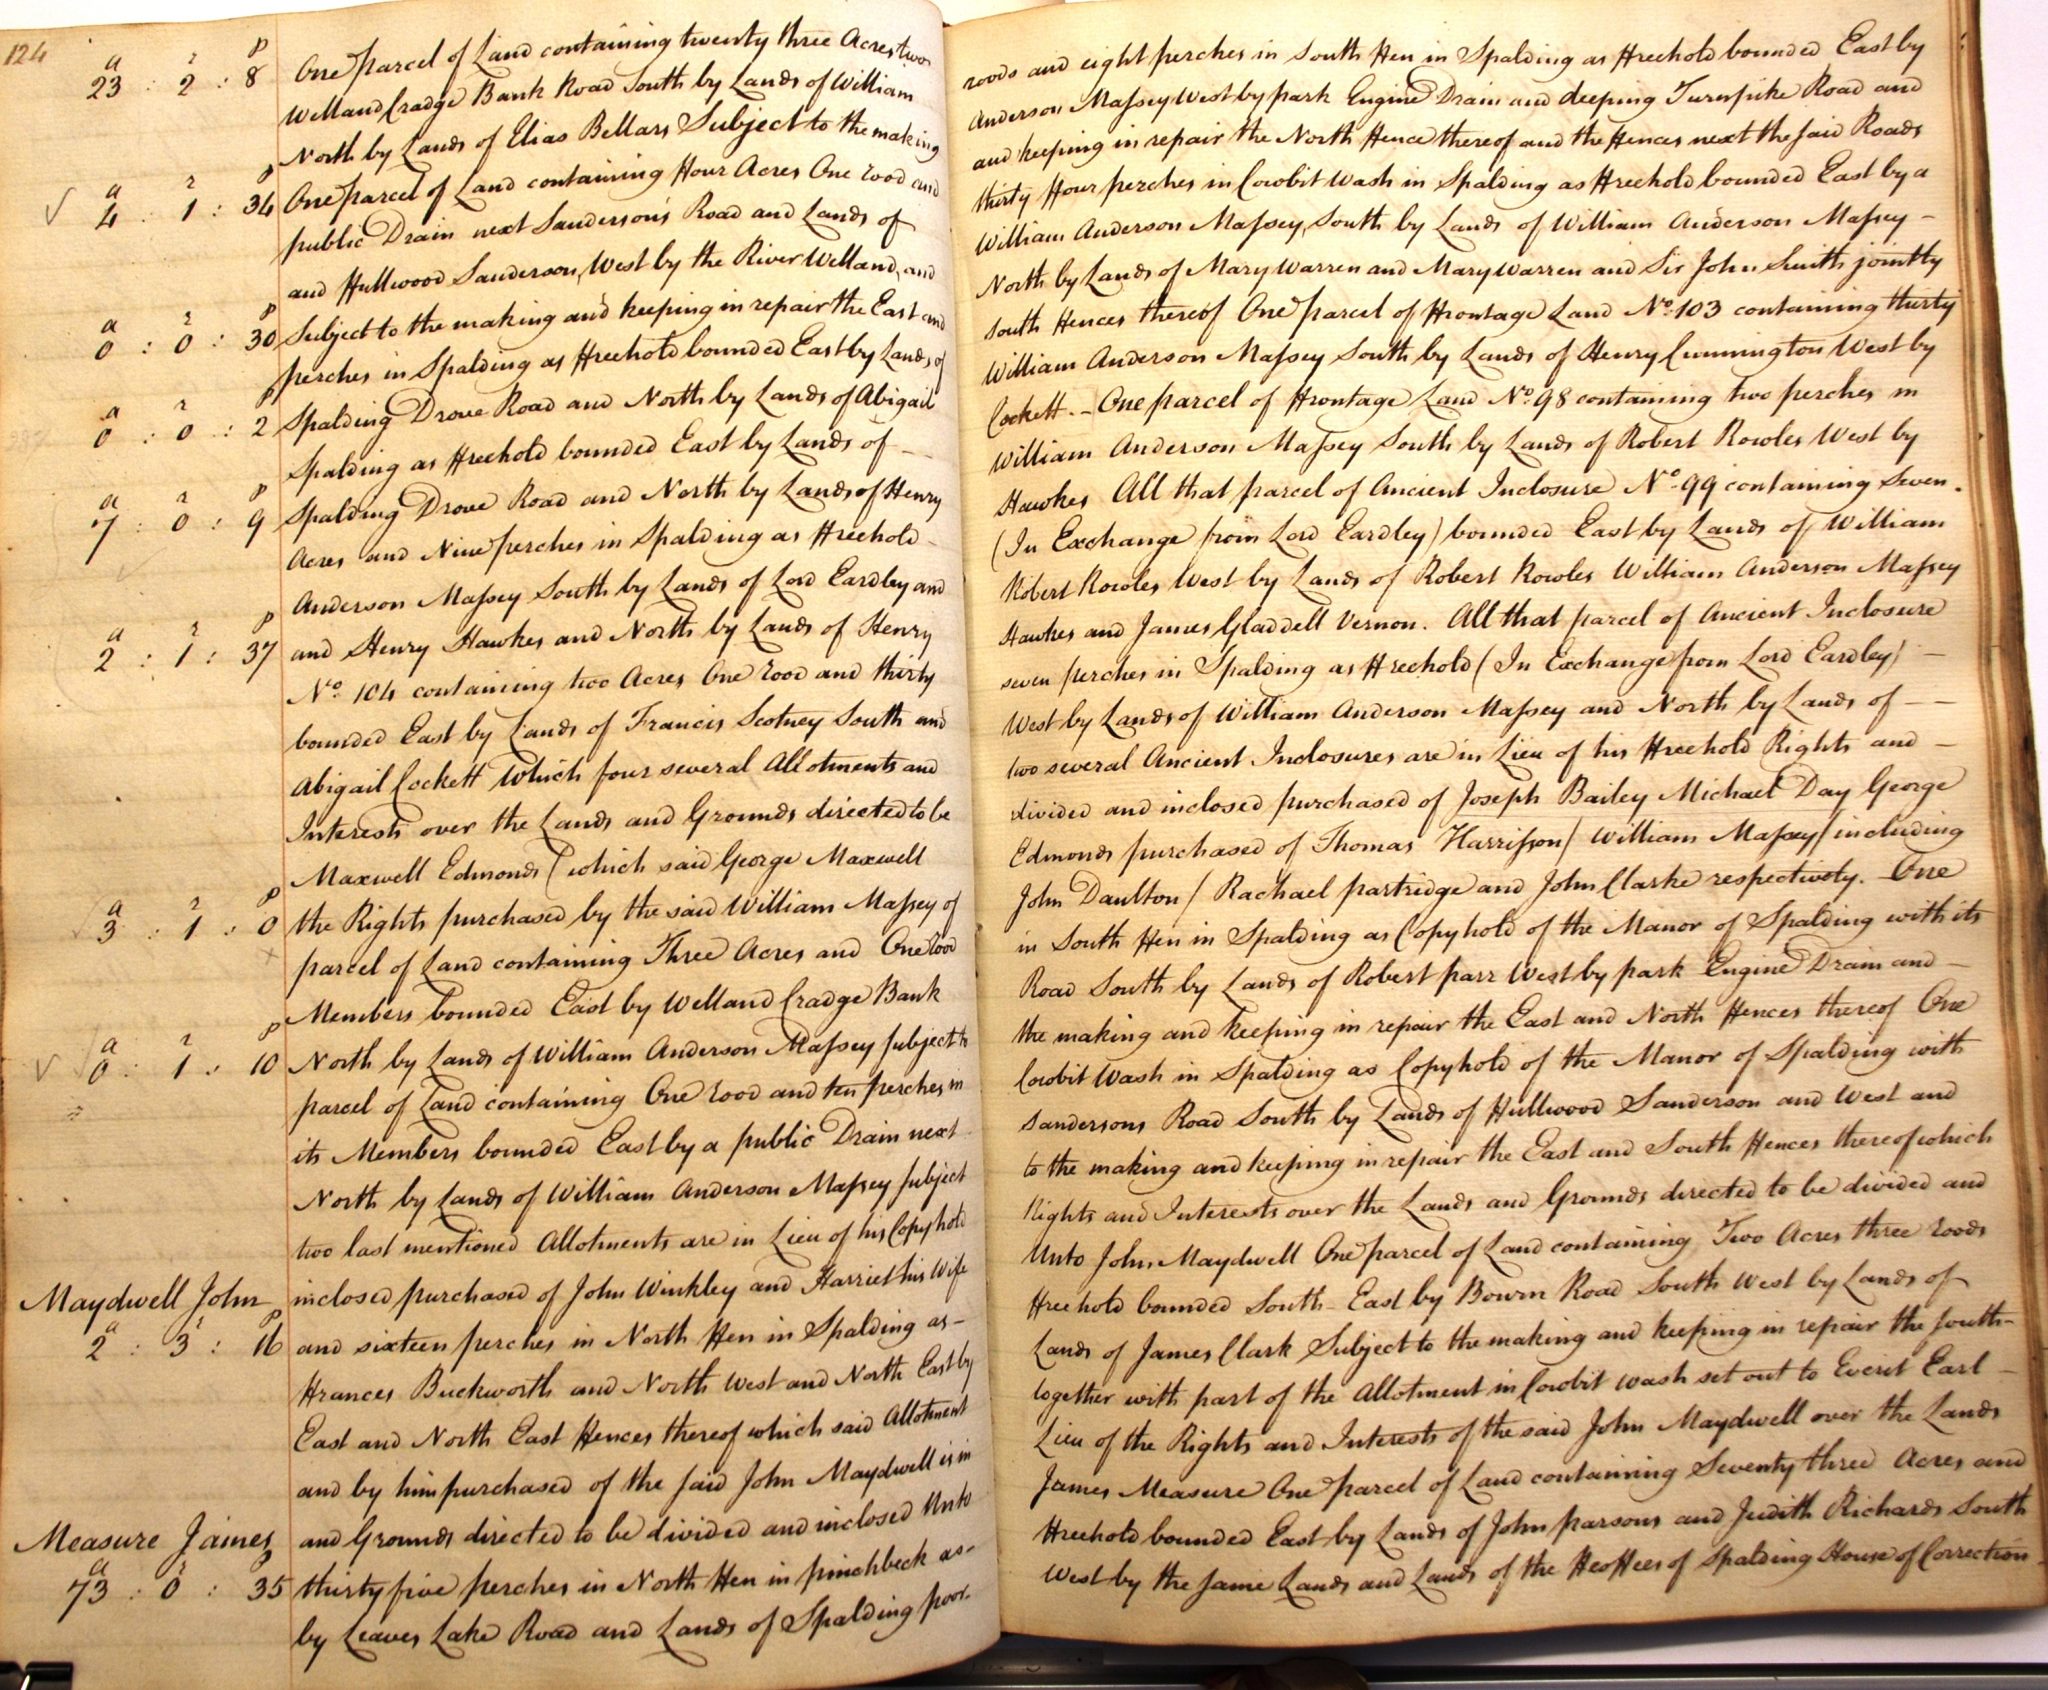 124
a r p
23 : 2 : 8 One parcel of Land containing twenty three Acres two roods and eight perches in South Fen in Spalding as Freehold bounded East by
Welland Cradge Bank Road South by Lands of William Anderson Massey West by park Engine Drain and deeping Turnpike Road and
North by Lands of Elias Bellars Subject to the making and keeping in repair the North Fence thereof and the Fences next the said Roads
a r p
4 : 1 : 34 One parcel of Land containing Four Acres One rood and thirty Four perches in Cowbit Wash in Spalding as Freehold bounded East by a
public Drain next Sanderson's Road and Lands of William Anderson Massey, South by Lands of William Anderson Massey -
and Fullwood Sanderson, West by the River Welland, and North by Lands of Mary Warren and Mary Warren and Sir John Smith jointly
a r p
0 : 0 : 30 Subject to the making and keeping in repair the East and South Fences thereof One parcel of Frontage Land No. 103 containing thirty
perches in Spalding as Freehold bounded East by Lands of William Anderson Massey South by Lands of Henry Cunnington West by
a r p
0 : 0 : 2 Spalding Drove Road and North by Lands of Abigail Cockett. - One parcel of Frontage Land No. 98 containing two perches in
Spalding as Freehold bounded East by Lands of - William Anderson Massey South by Lands of Robert Rowles West by
a r p
7 : 0 : 9 Spalding Drove Road and North by Lands of Henry Hawkes All that parcel of Ancient Inclosure No. 99 containing Seven
Acres and Nine perches in Spalding as Freehold (In Exchange from Lord Eardley) bounded East by Lands of William
Anderson Massey South by Lands of Lord Eardley and Robert Rowles West by Lands of Robert Rowles William Anderson Massey
a r p
2 : 1 : 37 and Henry Hawkes and North by Lands of Henry Hawkes and James Gladdell Vernon. All that parcel of Ancient Inclosure
No. 104 containing two Acres One rood and thirty seven perches in Spalding as Freehold (In Exchange from Lord Eardley) -
bounded East by Lands of Francis Scotney South and West by Lands of William Anderson Massey and North by Lands of - -
Abigail Cockett Which four several Allotments and two several Ancient Inclosures are in Lieu of his Freehold Rights and -
Interests over the Lands and Grounds directed to be divided and inclosed purchased of Joseph Bailey Michael Day George
Maxwell Edmonds (which said George Maxwell Edmonds purchased of Thomas Harrisson) William Massey (including
a r p
3 : 1 : 0 the Rights purchased by the said William Massey of John Daulton) Rachael partridge and John Clarke respectively. One
parcel of Land containing Three Acres and One rood in South Fen in Spalding as Copyhold of the Manor of Spalding with its
Members bounded East by Welland Cradge Bank Road South by Lands of Robert parr West by park Engine Drain and -
a r p
0 : 1 : 10 North by Lands of William Anderson Massey subject to the making and keeping in repair the East and North Fences thereof One
parcel of Land containing One rood and ten perches in Cowbit Wash in Spalding as Copyhold of the Manor of Spalding with
its Members bounded East by a public Drain next Sandersons Road South by Lands of Fullwood Sanderson and West and
North by Lands of William Anderson Massey subject to the making and keeping in repair the East and South Fences thereof which
two last mentioned Allotments are in Lieu of his Copyhold Rights and Interests over the Lands and Grounds directed to be divided and
Maydwell John inclosed purchased of John Winkley and Harriet his Wife Unto John Maydwell One parcel of Land containing Two Acres three roods
a r p
2 : 3 : 16 and sixteen perches in North Fen in Spalding as - Freehold bounded South-East by Bourn Road South West by Lands of
Frances Buckworth and North West and North East by Lands of James Clark Subject to the making and keeping in repair the South-
East and North East Fences thereof which said Allotment together with part of the Allotment in Cowbit Wash set out to Everit Earl -
and by him purchased of the said John Maydwell is in Lieu of the Rights and Interests of the said John Maydwell over the Lands
Measure James and Grounds directed to be divided and inclosed Unto James Measure One parcel of Land containing Seventy three Acres and
a r p
73 : 0 : 35 thirty five perches in North Fen in pinchbeck as - Freehold bounded East by Lands of John parsons and Judith Richards South
by Leaves Lake Road and Lands of Spalding poor. West by the same Lands and Lands of the Feoffees of Spalding House of Correction